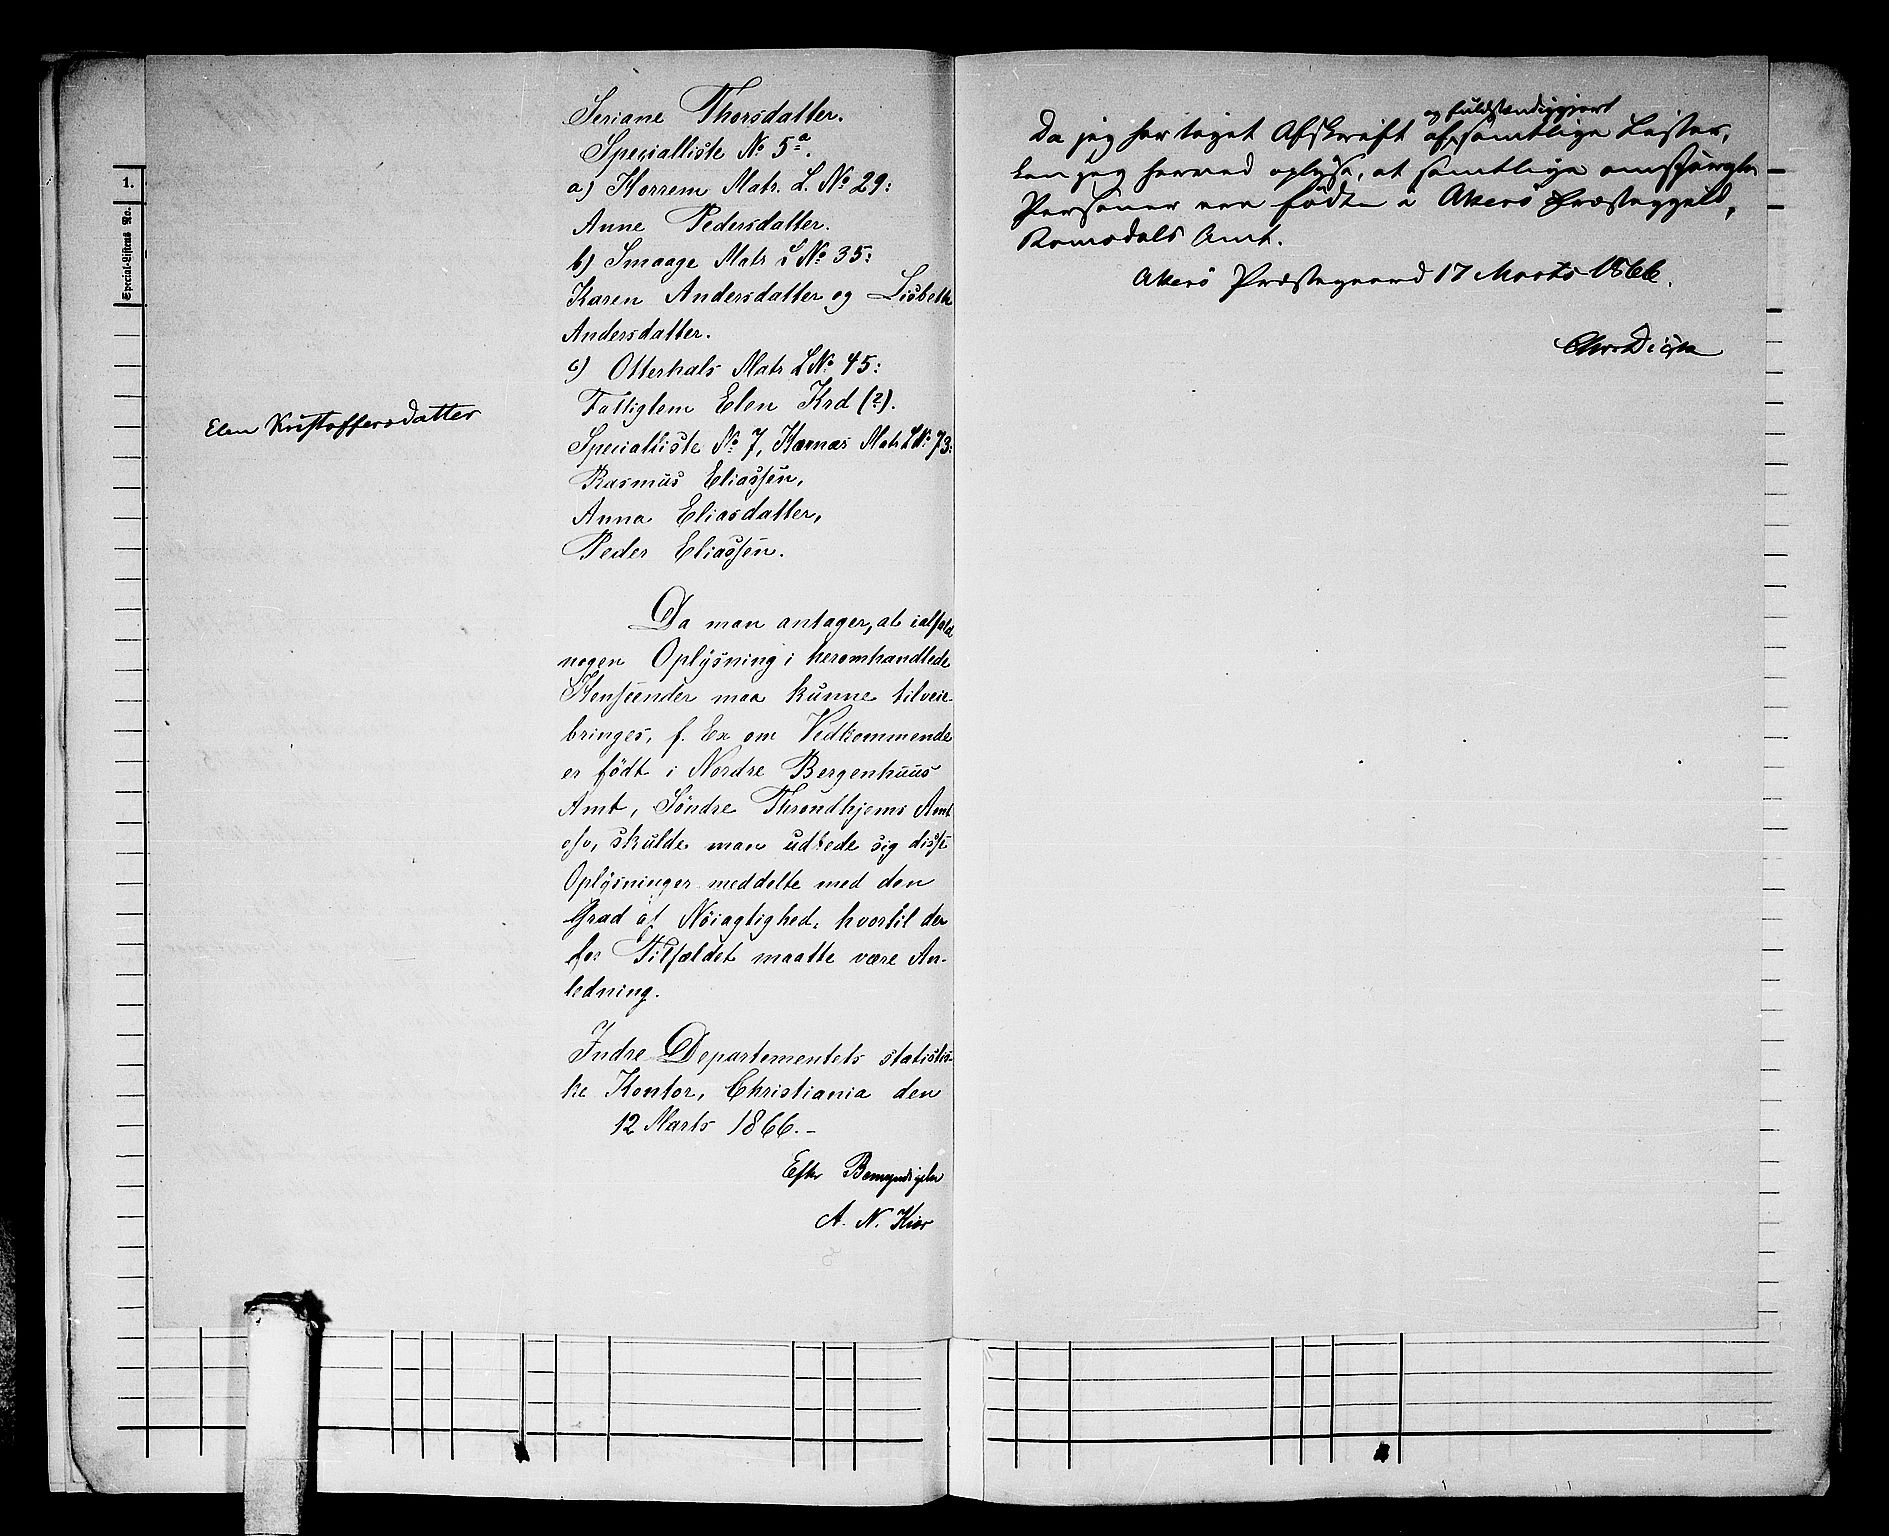 1.
Special-Listens No.
Seriane Thorsdatter.
Specialliste No 5a.
a) Horrem Matr. L. No 29:
Anne Pedersdatter.
b) Smaage Matr L No 35:
Karen Andersdatter og Lisbeth
Andersdatter.
c) Otterhals Matr L No 45:
Fattiglem Elen Krd (?).
Elen Kristoffersdatter
Specialliste No 7, Hamnæs Matr L No 73:
Rasmus Eliassen,
Anna Eliasdatter,
Peder Eliassen.
Da man antager, at ialfald
nogen Oplysning i heromhandlede
Henseender maa kunne tilveie-
bringes, f. Ex om Vedkommende
er født i Nordre Bergenhuus
Amt, Søndre Throndhjems Amt
osv, skulde man udbede sig disse
Oplysninger meddelte med den
Grad af Nøiagtighed, hvortil der
for Tilfældet maatte være An-
ledning.
Indre Departementets statisti-
ke Kontor, Christiania den
12 Marts 1866.-
Efter Bemyndigelse
A. N. Kiær
og fuldstændiggjort
Da jeg har taget Afskrift af samtlige Lister,
kan jeg herved oplyse, at samtlige omspurgte
Personer ere fødte i Akerø Præstegjeld,
Romsdals Amt.
Akerø Præstegaard 17 Marts 1866.